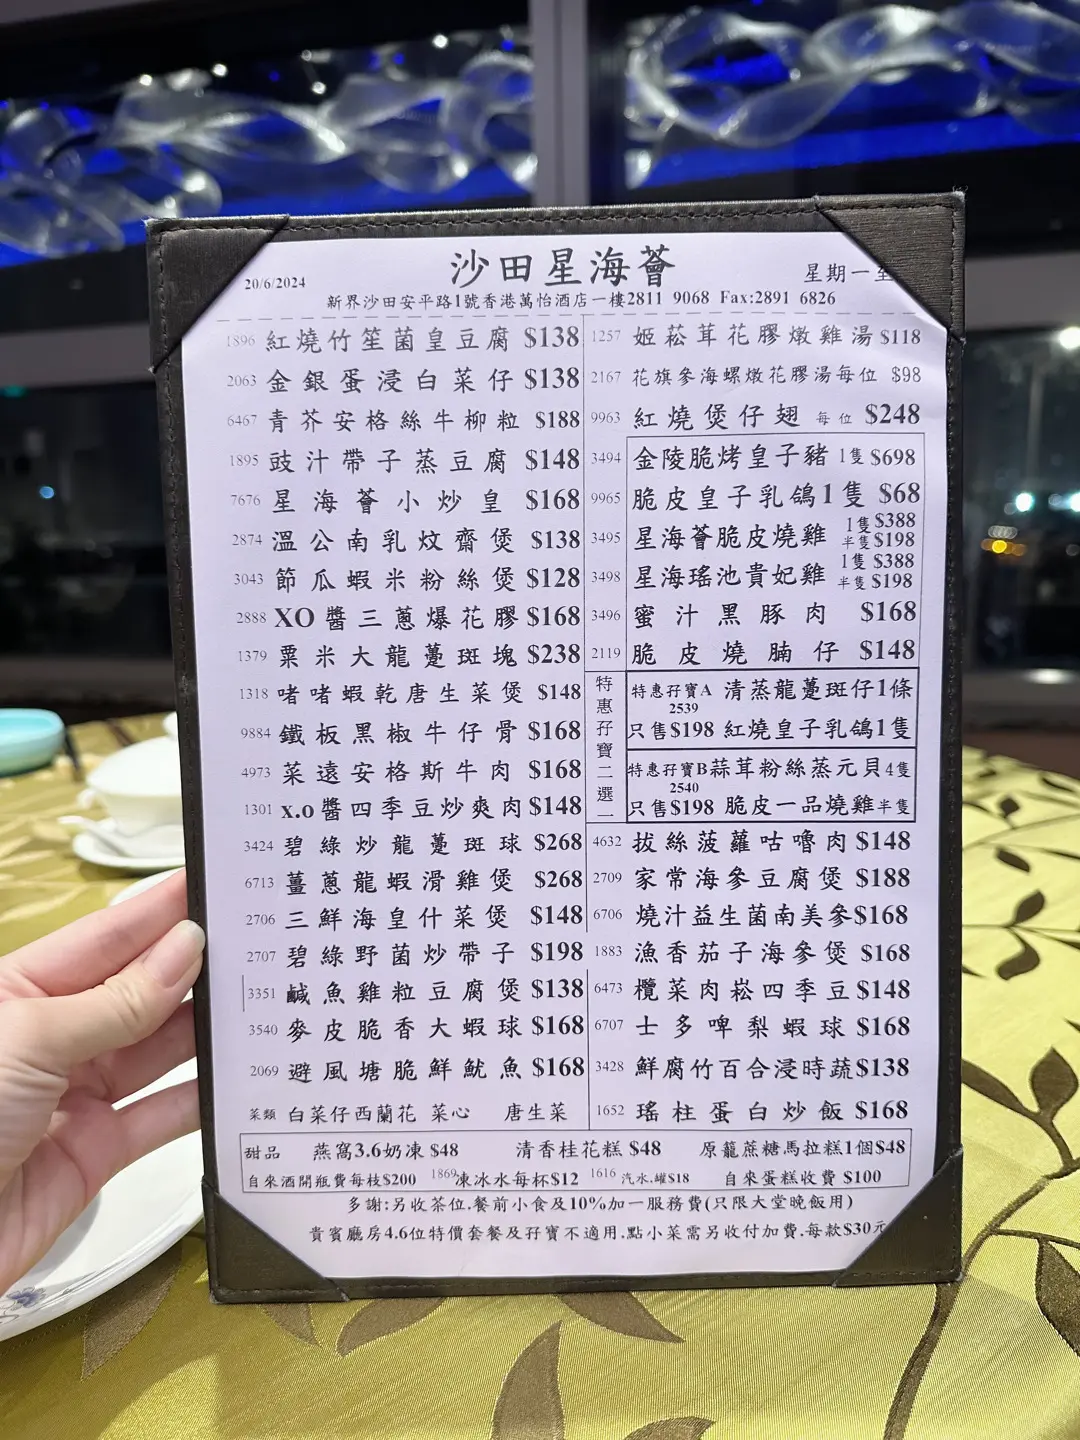 沙田星海薈
20/6/2024
星期一至
新界沙田安平路1號香港萬怡酒店一樓2811 9068 Fax:2891 6826
1896 紅燒竹笙菌皇豆腐 $138
2063 金銀蛋浸白菜仔 $138
6467 青芥安格絲牛柳粒 $188
1895 豉汁帶子蒸豆腐 $148
7676 星海薈小炒皇 $168
2874 溫公南乳炆齋煲 $138
3043 節瓜蝦米粉絲煲 $128
2888 XO醬三蔥爆花膠 $168
1379 粟米大龍躉斑塊 $238
1318 啫啫蝦乾唐生菜煲 $148
9884 鐵板黑椒牛仔骨 $168
4973 菜遠安格斯牛肉 $168
1301 x.o醬四季豆炒爽肉 $148
3424 碧綠炒龍躉斑球 $268
6713 薑蔥龍蝦滑雞煲 $268
2706 三鮮海皇什菜煲 $148
2707 碧綠野菌炒帶子 $198
3351 鹹魚雞粒豆腐煲 $138
3540 麥皮脆香大蝦球 $168
2069 避風塘脆鮮魷魚 $168
菜類 白菜仔西蘭花 菜心 唐生菜
1257 姬菘茸花膠燉雞湯 $118
2167 花旗參海螺燉花膠湯每位 $98
9963 紅燒煲仔翅 每位 $248
3494 金陵脆烤皇子豬 1隻 $698
9965 脆皮皇子乳鴿1隻 $68
3495 星海薈脆皮燒雞 1隻 $388
半隻 $198
3498 星海瑤池貴妃雞 1隻 $388
半隻 $198
3496 蜜汁黑豚肉 $168
2119 脆皮燒腩仔 $148
特惠孖寶二選一
特惠孖寶A 清蒸龍躉斑仔1條
2539
只售$198 紅燒皇子乳鴿1隻
特惠孖寶B蒜茸粉絲蒸元貝4隻
2540
只售$198 脆皮一品燒雞半隻
4632 拔絲菠蘿咕嚕肉 $148
2709 家常海參豆腐煲 $188
6706 燒汁益生菌南美參$168
1883 漁香茄子海參煲 $168
6473 欖菜肉崧四季豆 $148
6707 士多啤梨蝦球 $168
3428 鮮腐竹百合浸時蔬$138
1652 瑤柱蛋白炒飯 $168
甜品 燕窩3.6奶凍 $48 清香桂花糕 $48 原籠蔗糖馬拉糕1個$48
自來酒開瓶費每枝$200 1869凍冰水每杯$12 1616 汽水.罐$18 自來蛋糕收費 $100
多謝:另收茶位.餐前小食及10%加一服務費(只限大堂晚飯用)
貴賓廳房4.6位特價套餐及孖寶不適用.點小菜需另收付加費.每款$30元